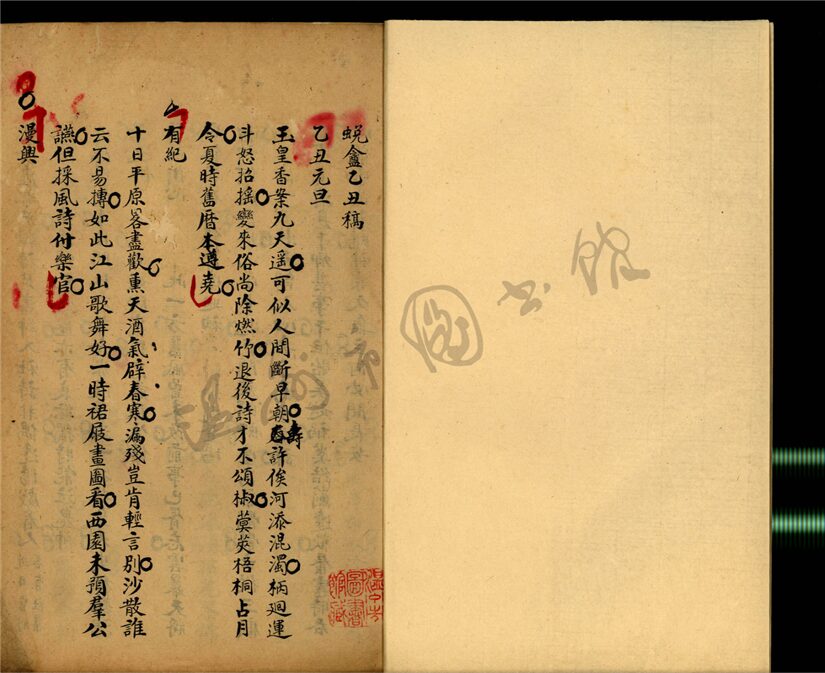 蜕盦乙丑稿
乙丑元旦
玉皇香案九天遥可似人間斷早朝壽許俟河添混濁柄廻運
斗怒招搖變來俗尚除燃竹退後詩才不頌椒蓂莢梧桐占月
令夏時舊曆本遵堯
有紀
十日平原畧盡歡熏天酒氣辟春寒漏殘豈肯輕言別沙散誰
云不易摶如此江山歌舞好一時裙屐畫圖看西園未預羣公
讌但採風詩付樂官
漫興
温州市图书馆